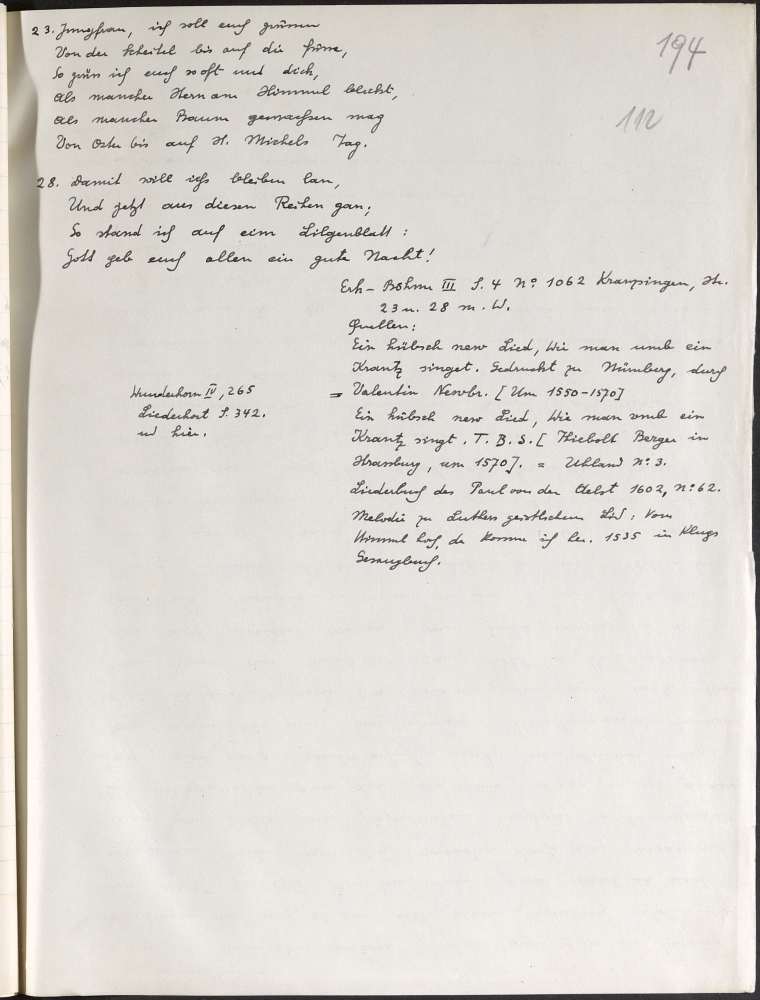 194
112
23. Jungfrau, ich soll euch grüssen
Von der Scheitel bis auf die füsse,
So grüss ich euch so oft und dick,
Als mancher Stern am Himmel blickt,
Als mancher Baum gewachsen mag
Von Ostern bis auf St. Michels Tag.
28. Damit will ichs bleiben lan,
Und jetzt aus diesen Reihen gan;
So stand ich auf eim Lilgenblatt:
Gott geb euch allen ein gute Nacht!
Erk-Böhme III S. 4 No 1062 Kranzsingen, Str.
23 u. 28 m. W.
Quellen:
Ein hübsch new Lied, Wie man umb ein
Krantz singet. Gedruckt zu Nürnberg, durch
Valentin Newbr. [Um 1550-1570]
Wunderhorn IV, 265
Liederhort S. 342.
und hier.
= Ein hübsch new Lied, Wie man vmb ein
Krantz singt. T. B. S. [Thiebolt Berger in
Strassburg, um 1570]. = Uhland No 3.
Liederbuch des Paul von der Aelst 1602, No 62.
Melodie zu Luthers geistlichem Lied: Vom
Himmel hoch, da komm ich her. 1535 in Klugs
Gesangbuch.